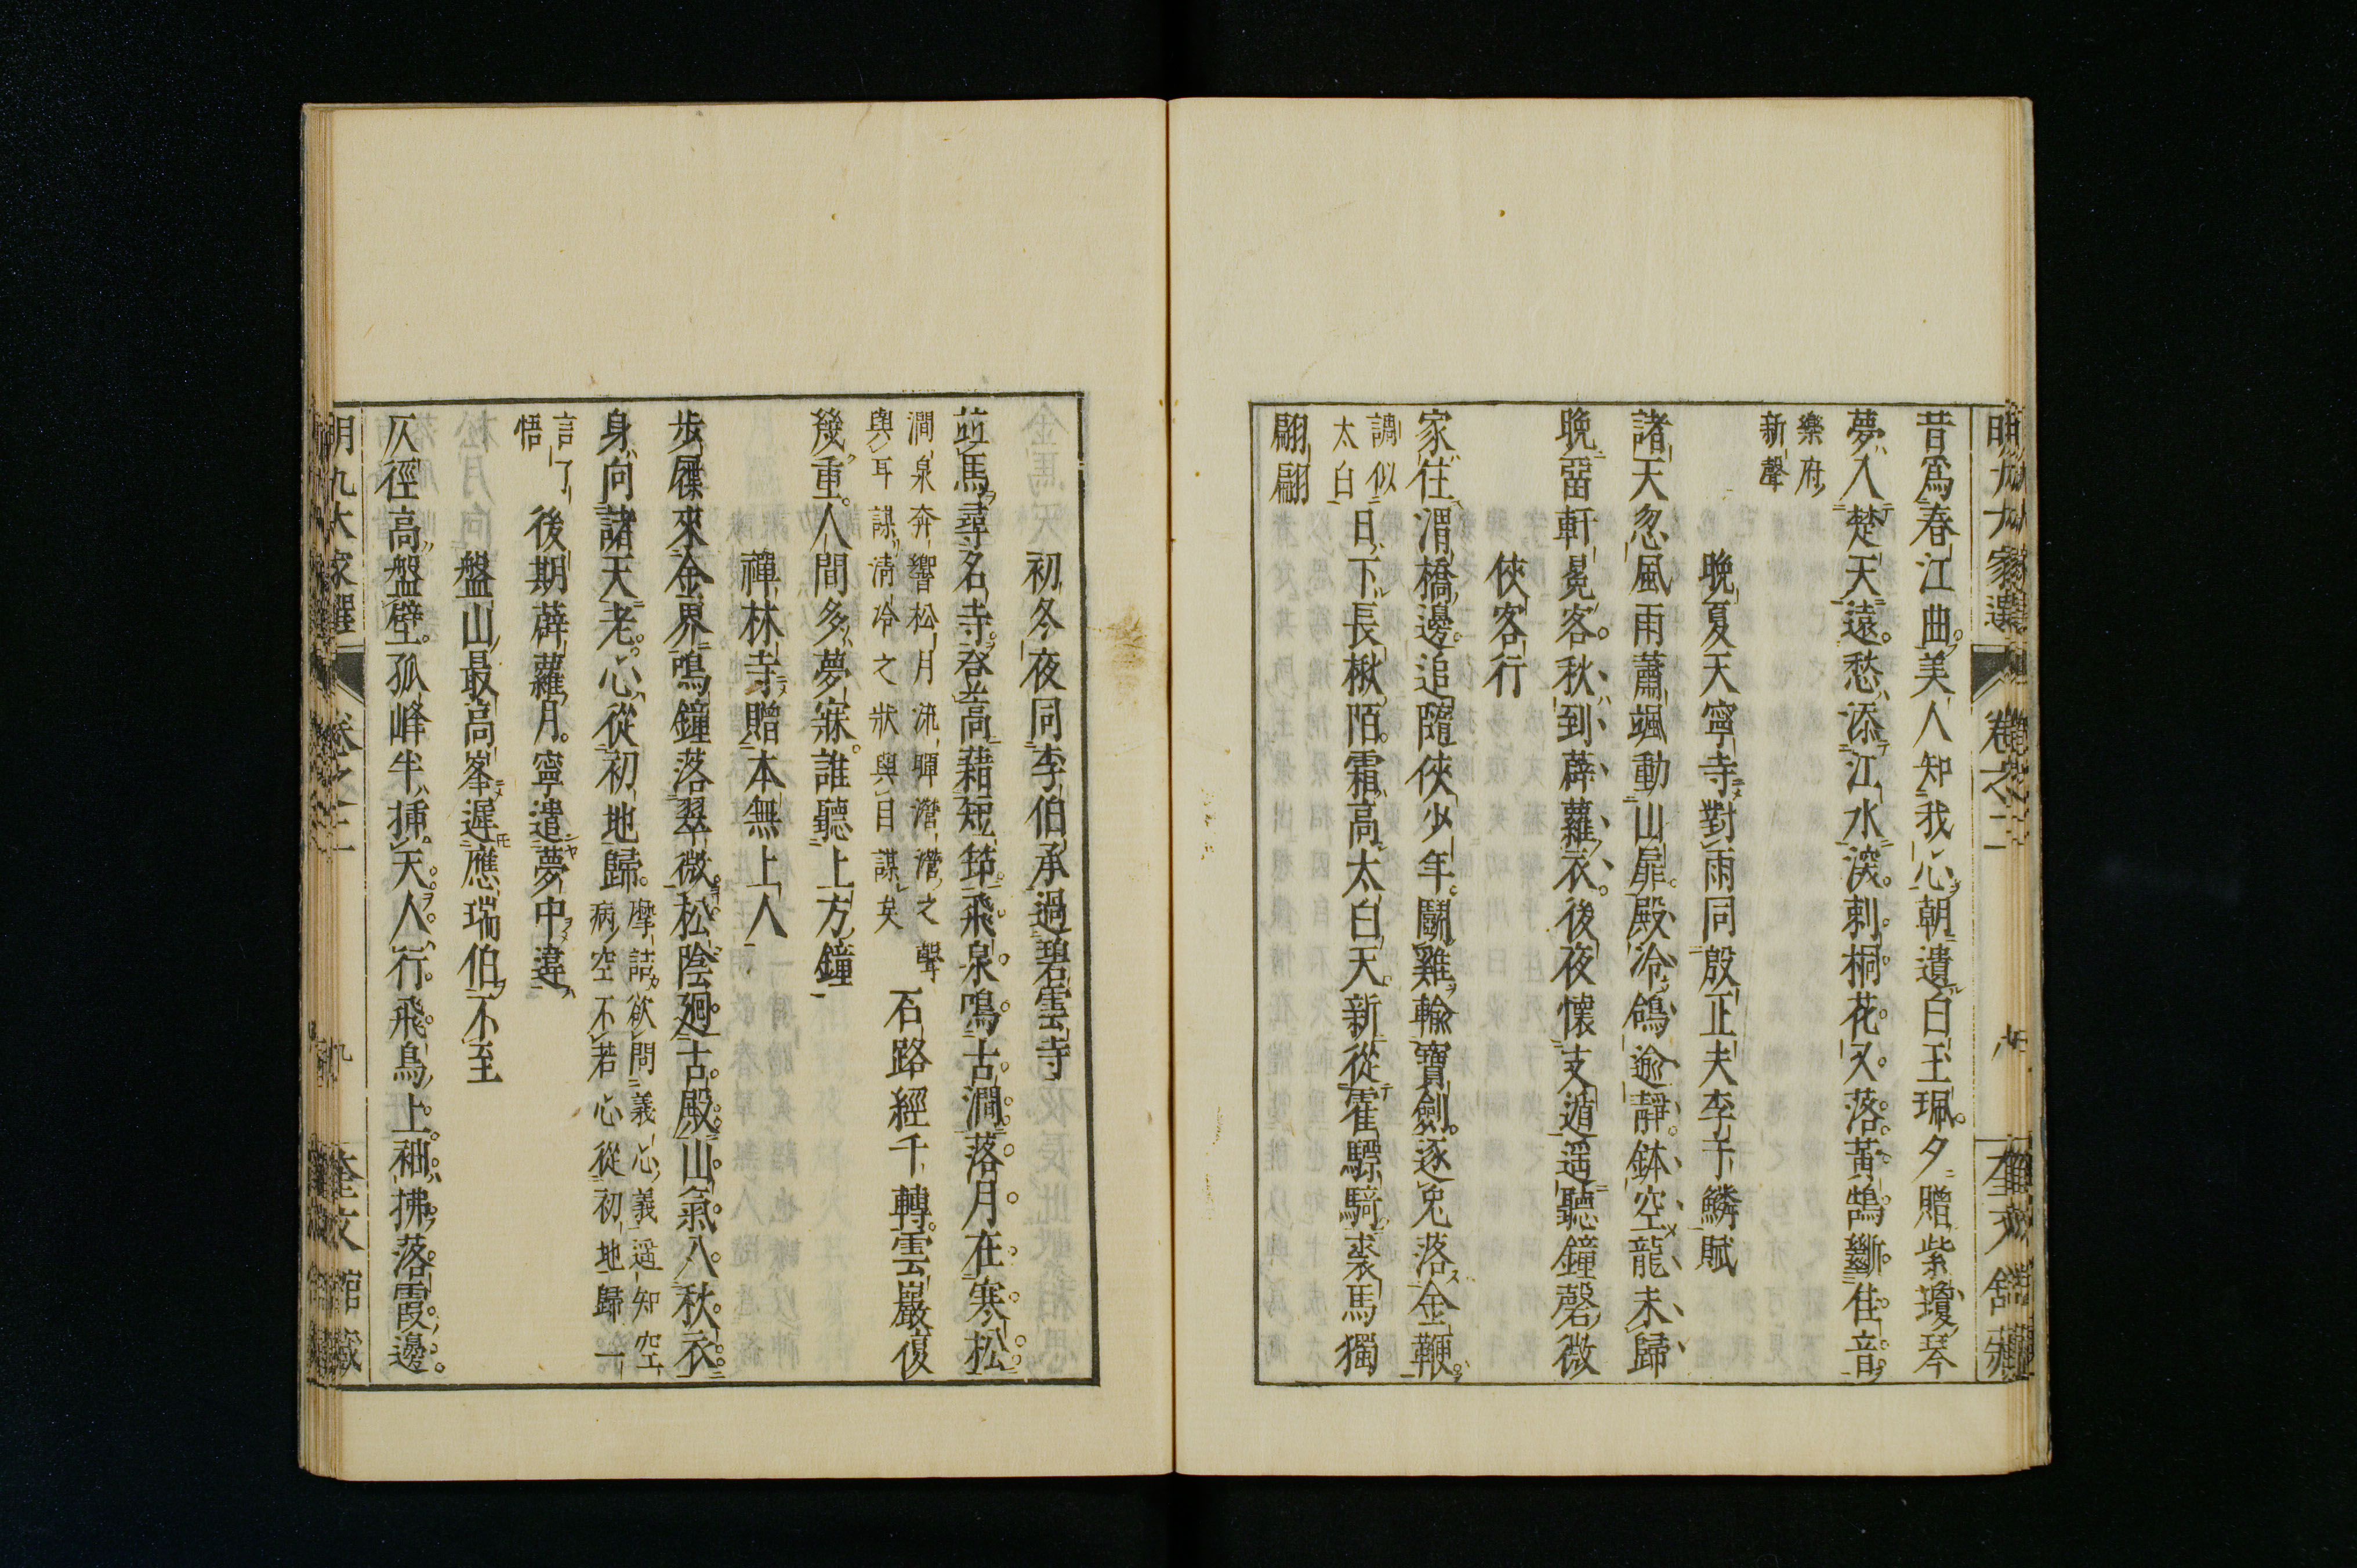 昔爲春江曲美人知我心朝遺白玉珮夕贈紫瓊琴
夢入楚天遠愁添江水深刺桐花又落黃鵠斷佳音
樂府
新聲
晚夏天寧寺對雨同殷正夫李于鱗賦
諸天忽風雨蕭颯動山扉殿冷鴿逾靜鉢空龍未歸
晚畱軒冕客秋到薜蘿衣後夜懷支遁遥聽鐘磬微
俠客行
家住渭橋邊追隨俠少年鬭雞輸寶劍逐兎落金鞭
調似
太白
日下長楸陌霜高太白天新從霍驃騎裘馬獨
翩翩
初冬夜同李伯承過碧雲寺
竝馬尋名寺登高藉短笻飛泉鳴古澗落月在寒松
澗泉奔響松月流暉濳濳之聲
與耳謀清冷之狀與目謀矣
石路經千轉雲巖復
幾重人間多夢寐誰聽上方鐘
禪林寺贈本無上人
步屧來金界鳴鐘落翠微松陰廻古殿山氣入秋衣
身向諸天老心從初地歸
摩詰欲問義心義遥知空
病空不若心從初地歸一
言了
悟
後期薜蘿月寧遣夢中違
盤山最高峯遲應瑞伯不至
仄徑高盤壁孤峰半揷天人行飛鳥上袖拂落霞邊
明九大家選
卷之二
九
奎文館藏